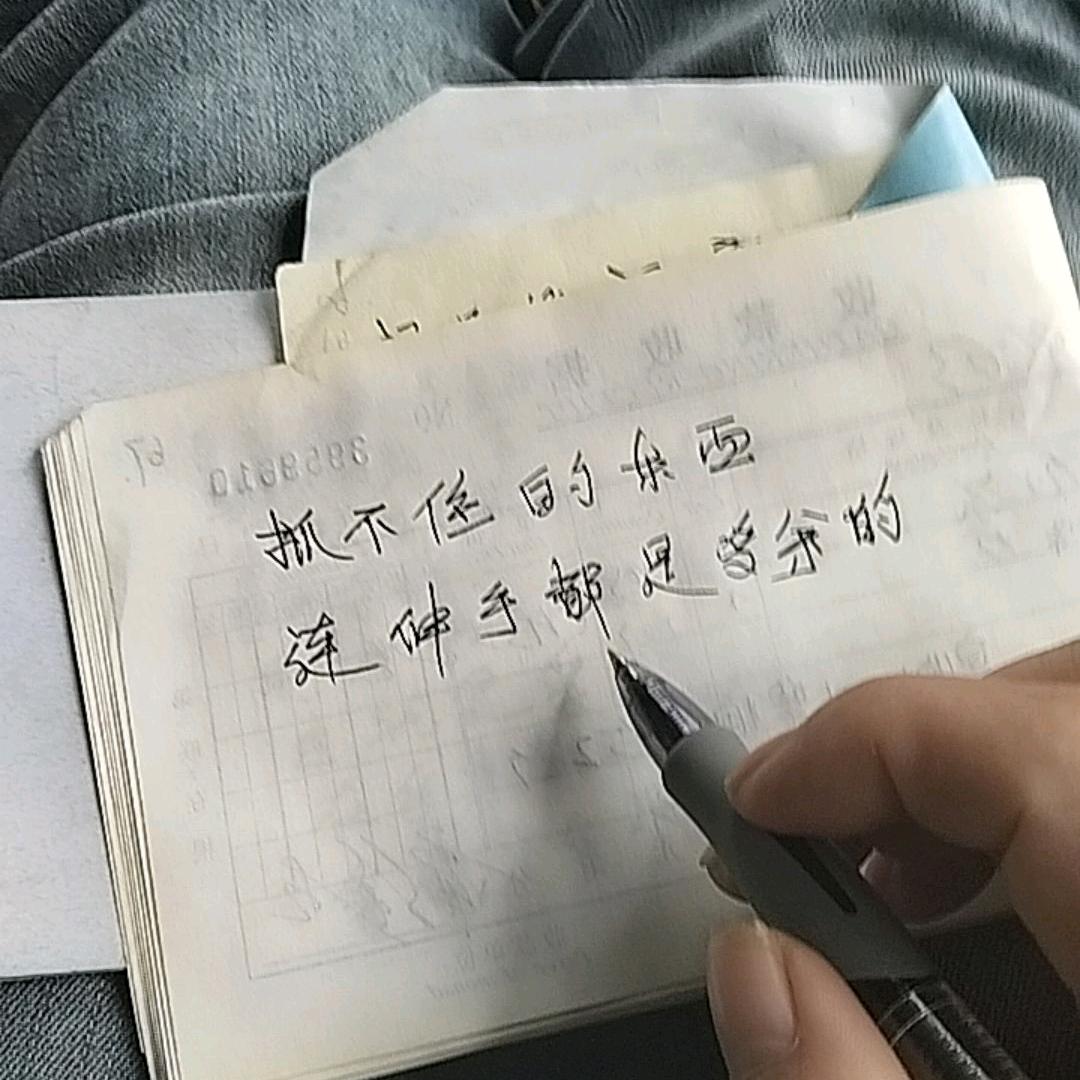 抓不住的东西
连伸手都是多余的
3959610